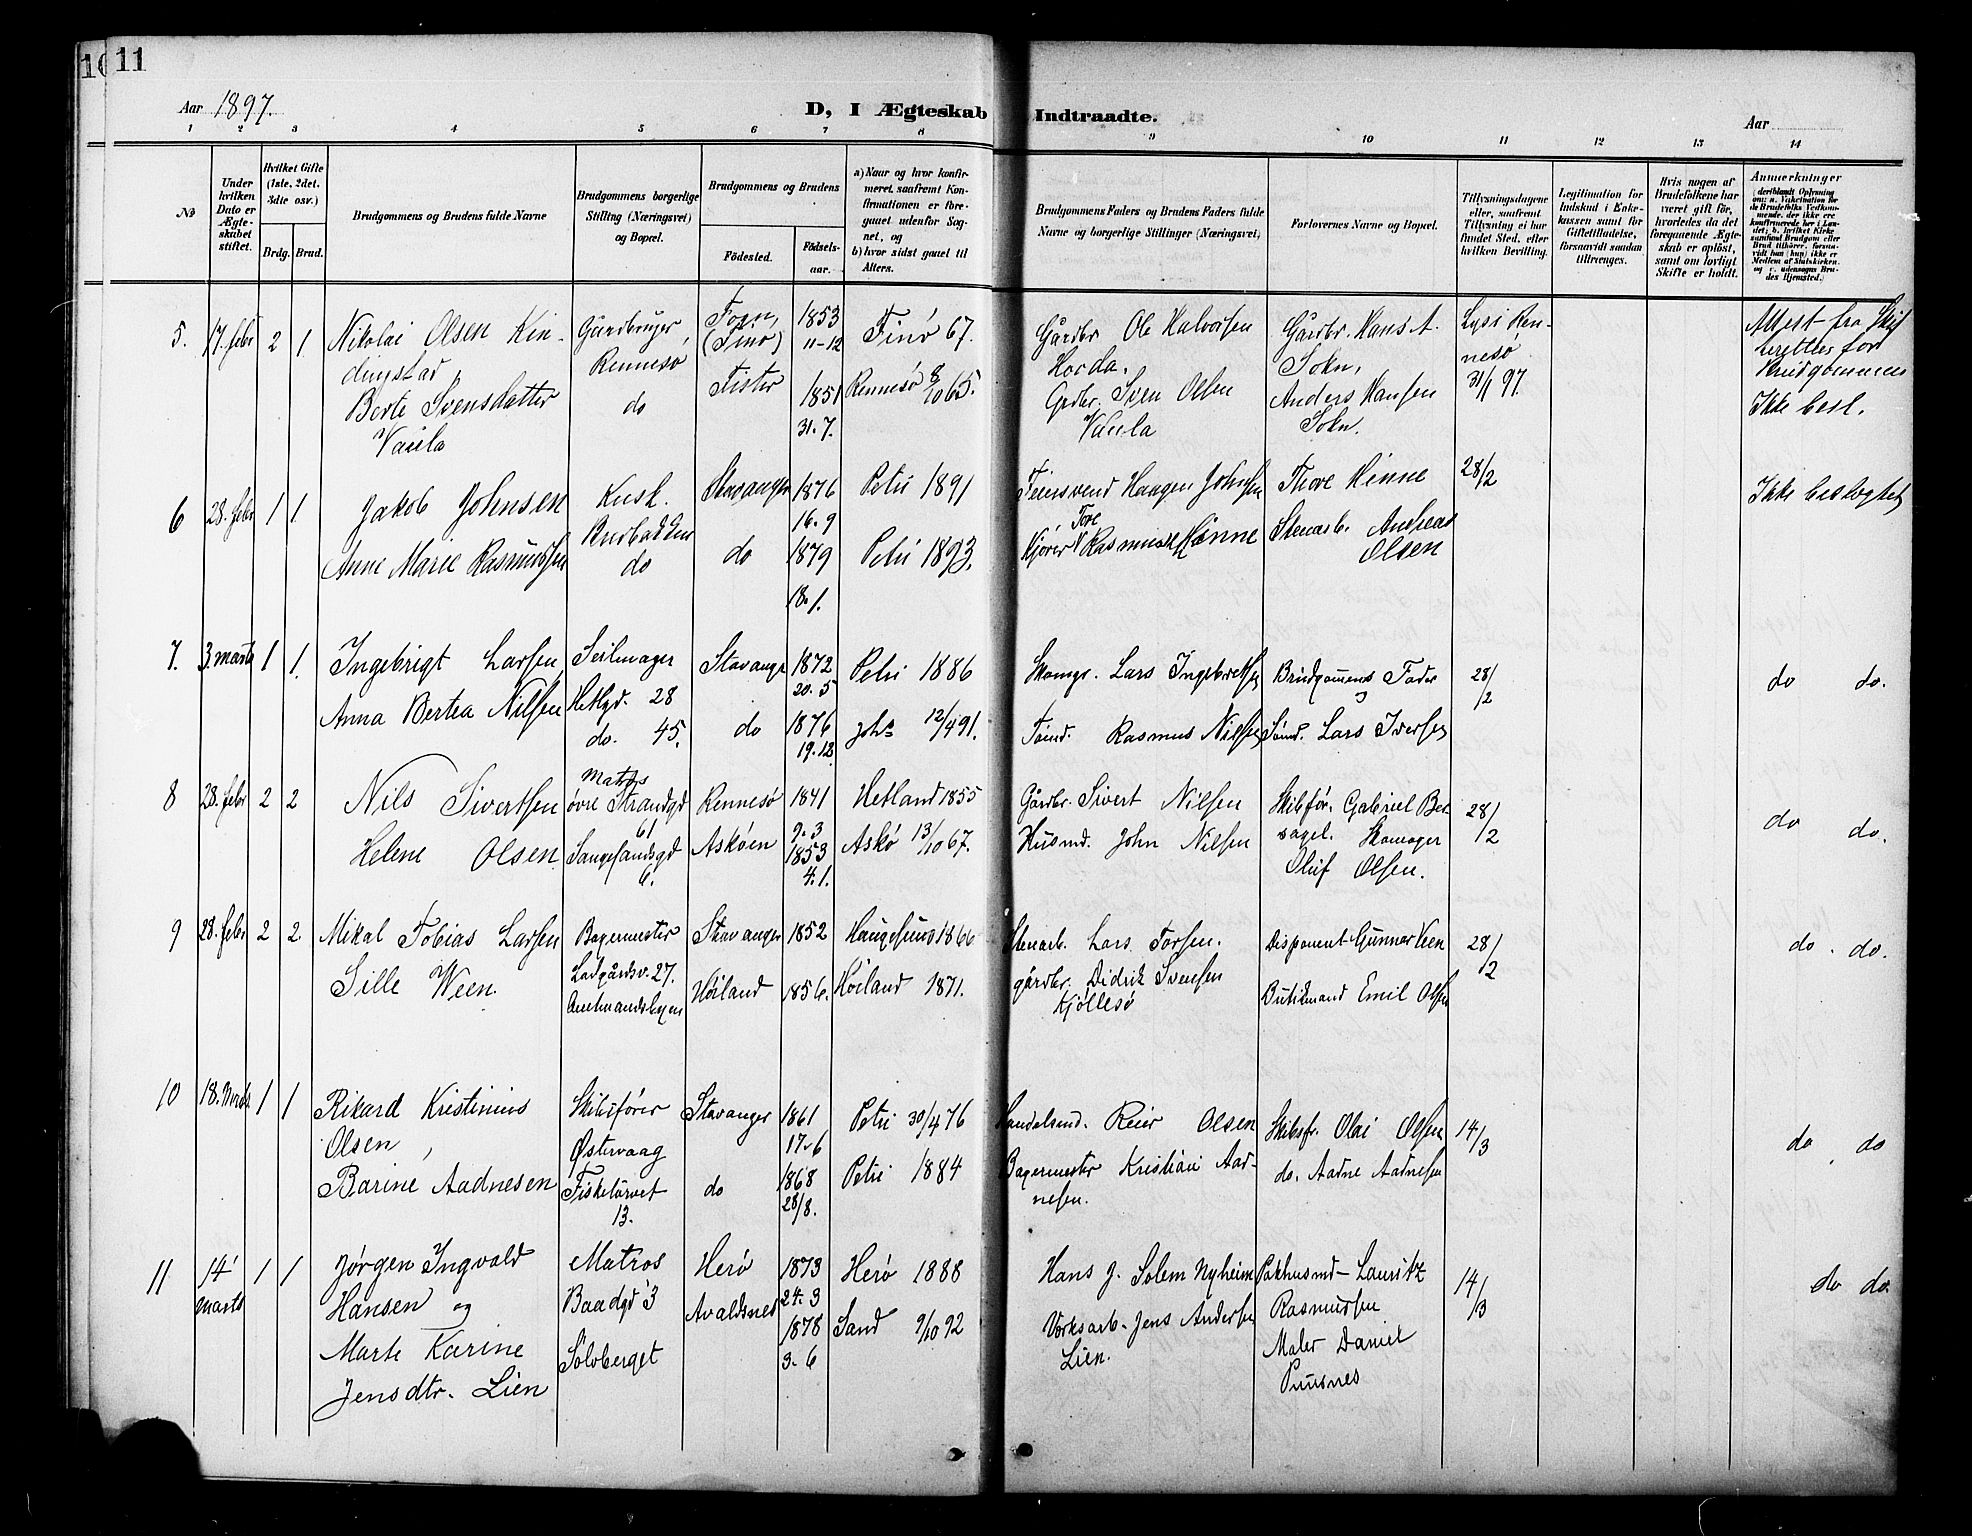 11
Aar 1897.
D, I Ægteskab Indtraadte.
Aar
1 2 3 4 5 6 7 8 9 10 11 12 13 14
No
Under hvilken Dato er Ægteskabet stiftet.
Hvilket Gifte (1ste, 2det, 3die osv.)
Brdg. Brud.
Brudgommens og Brudens fulde Navne
Brudgommens borgerlige Stilling (Næringsvei) og Bopæl.
Brudgommens og Brudens
Födested.
Födselsaar.
a) Naar og hvor konfirmeret, saafremt Konfirmationen er foregaaet udenfor Sognet, og
b) hvor sidst gaaet til Alters.
Brudgommens Faders og Brudens Faders fulde Navne og borgerlige Stillinger (Næringsvei)
Forlovernes Navne og Bopæl.
Tillysningsdagene eller, saafremt Tillysning ei har fundet Sted, efter hvilken Bevilling.
Legitimation for Indskud i Enkekassen samt for Giftetilladelse, forsaavidt saadan tiltrænges.
Hvis nogen af Brudefolkene har været gift för, hvorledes da det foregaaende Ægteskab er oplöst, samt om lovligt Skifte er holdt.
Anmærkninger
5. 17. febr 2 1
Nikolai Olsen Kindingstad,
Berte Svensdatter
Vaula
Gårdbruger
Rennesø
do
Fogn,
(Finø)
Fister
1853
11-12
1851
31. 7.
Finø 67.
Rennesø 8/10 65.
Gårdbr. Ole Halvorsen
Horda.
Grdbr. Sven Olsen
Vaula
Gårdbr. Hans A.
Sokn,
Anders Hansen
Sokn.
Lyst Rennesø
31/1 97.
Attest fra Skifteretten for
Brudgommen
Ikke besl.
6 28. febr 1 1
Jakob Johnsen
Anne Marie Rasmussen
Kusk.
do
Stavanger
do
1876
16. 9
1879
18. 1.
Petri 1891
Petri 1893.
Feiersvend Haagen Johnsen
Tore
Kjører Rasmussen Hinne
Thore Hinne
Stenarb. Andreas
Olsen
28/2
Ikke beslægtet
7. 3. marts 1 1.
Ingebrigt Larsen
Anna Bertea Nilsen
Seilmager
Hetlgd. 28
do. 45.
Stavanger
do
1872
20. 5
1876
19. 12
Petri 1886
Johs 12/4 91.
Skomgr. Lars Ingebretsen
Tømd. Rasmus Nilsen
Brudgomens Fader
og
Tømd. Lars Iversen
28/2
do do.
8 28. febr 2 2
Nils Sivertsen
Helene Olsen
Matros
øvre Strandgd
61
6.
Rennesø
Askøen
1841
9. 3
1853
4. 1.
Hetland 1855
Askø 13/10 67.
Gårdbr. Sivert Nilsen
Husmd. John Nilsen
Skibsfør. Gabriel Bersagel. Skomager
Oluf Olsen.
28/2
do do.
9 28. febr 2 2.
Mikal Tobias Larsen
Sille Ween.
Bagermester
Ladgårdsv. 27.
Stavanger
Høiland
1852
1856.
Haugesund 1866
Høiland 1871.
Stenarb. Lars Torsen.
gårdbr. Didrik Svensen
Kjøllesø
Disponent Gunnar Veen
Butikmand Emil Olsen
28/2
do. do.
10 18. Marts 1 1
Rikard Kristinius
Olsen,
Barine Aadnesen
Skibsfører
Østervaag
Fisketorvet
13.
Stavanger
do
1861
17-6
1868
28/8.
Petri 30/4 76
Petri 1884
Handelsmd. Reier Olsen
Bagermester Kristian Aadnesen.
Skibsfr. Olai Olsen
do. Aadne Aadnesen
14/3
do do
11 14 marts 1 1
Jørgen Ingvald
Hansen og
Marte Karine
Jensdtr. Lien
Matros
Baadgd 3
Sølvberget
Herø
Avaldsnes
1873
24. 3
1878
3-6
Herø 1888
Sand 9/10 92
Hans J. Solem Nyheim
Værksarb. Jens Andersen
Lien.
Pakhusmd- Lauritz
Rasmussen
Maler Daniel
14/3
do do.